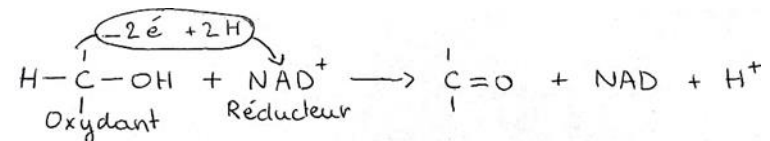 -2 é + 2 H
H-C-OH + NAD⁺ ⟶ C=O + NAD + H⁺
Oxydant Réducteur